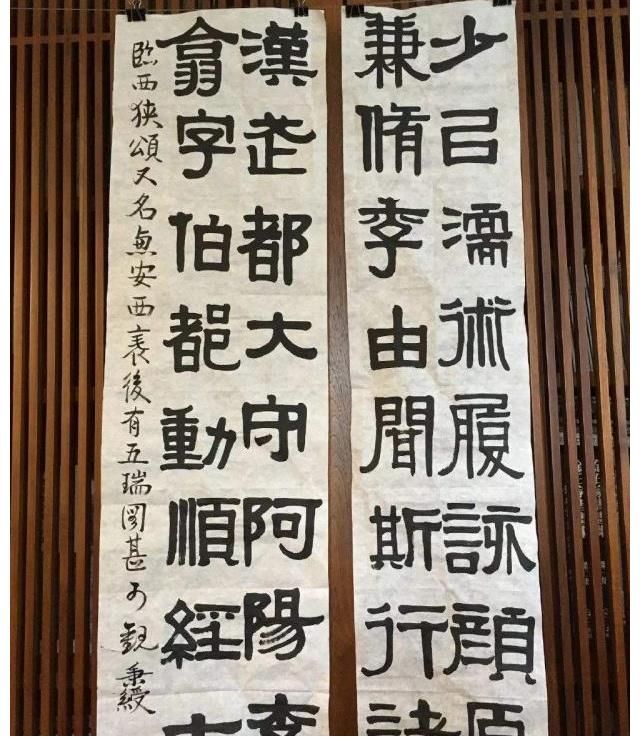 少㠯濡術履詠顔原
兼脩季由聞斯行諸
漢武都大守阿陽李
翕字伯都動順經
臨西狹頌又名惠安西表後有五瑞圖甚可觀 秉綬